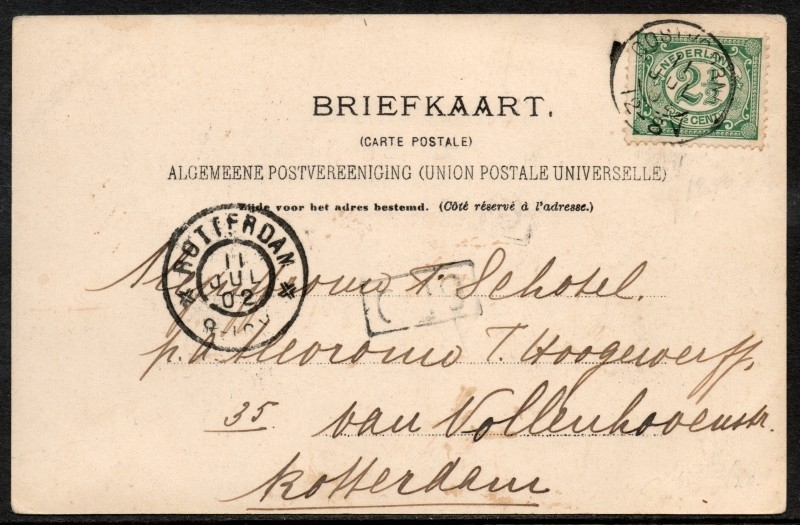 BRIEFKAART.
(CARTE POSTALE)
ALGEMEENE POSTVEREENIGING (UNION POSTALE UNIVERSELLE)
Zijde voor het adres bestemd. (Côté réservé à l'adresse.)
NEDERLAND
2½
CENT
ROTTERDAM
11
JUL
02
T. Schotel.
p.a. Mevrouw T. Hoogewerff,
35. van Vollenhovenstr.
Rotterdam